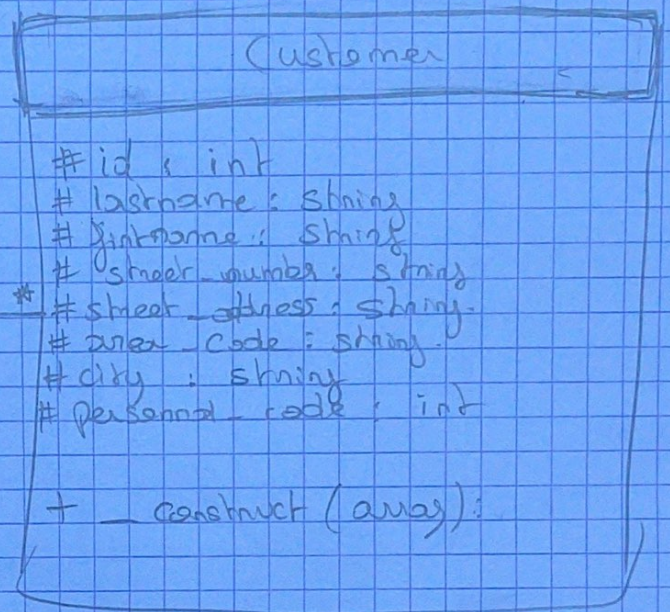 Customer
# id : int
# lastname : string
# firstname : string
# street_number : string
*
# street_address : string.
# area_code : string.
# city : string
# personnal_code : int
+ __construct (array) :